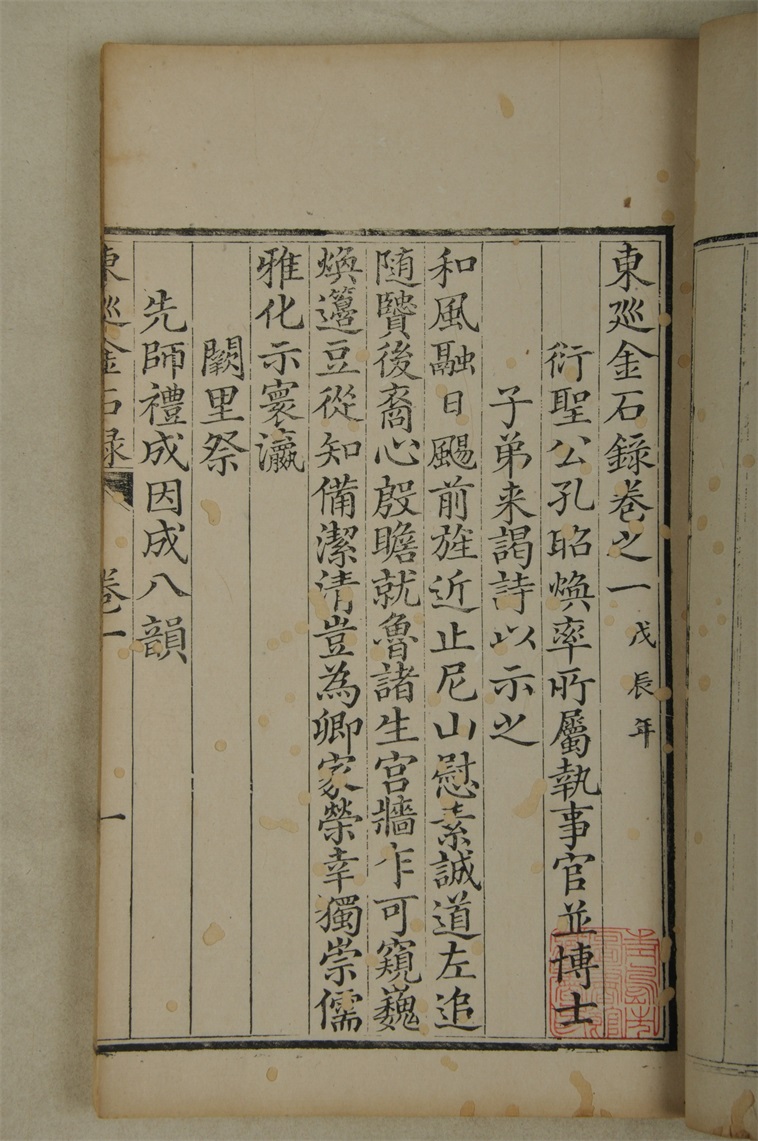 東廵金石錄卷之一 戊辰年
衍聖公孔昭煥率所屬執事官並博士
子弟来謁詩以示之
和風融日颺前旌近止尼山慰素誠道左追
随賢後裔心殷瞻就魯諸生宮牆乍可窺巍
煥籩豆從知備潔清豈為卿家榮幸獨崇儒
雅化示寰瀛
闕里祭
先師禮成因成八韻
東廵金石録 卷一 一